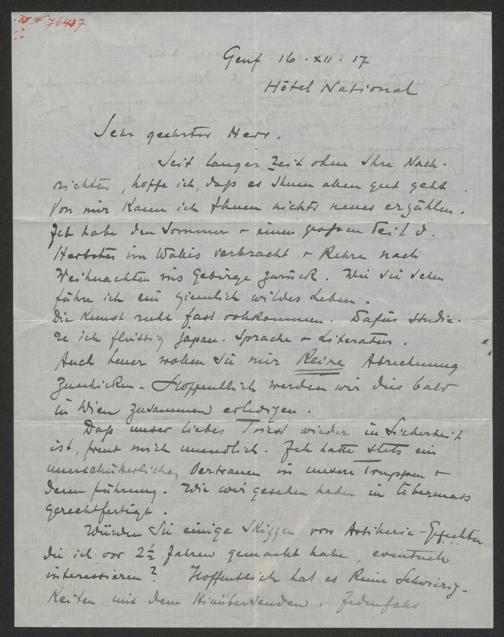 76417
Genf 16.XII.17
Hôtel National
Sehr geehrter Herr.
Seit langer Zeit ohne Ihre Nach-
richten, hoffe ich, daß es Ihnen allen gut geht.
Von mir kann ich Ihnen nichts neues erzählen.
Ich habe den Sommer + einen großen Teil d.
Herbstes im Wallis verbracht + kehre nach
Weihnachten ins Gebirge zurück. Wie Sie sehen
führe ich ein ziemlich wildes Leben.
Die Kunst ruht fast vollkommen. Dafür studie-
re ich fleissig japan. Sprache + Literatur.
Auch heuer wollen Sie mir keine Abrechnung
zuschicken. Hoffentlich werden wir dies bald
in Wien zusammen erledigen.
Daß unser liebes Triest wieder in Sicherheit
ist, freut mich unendlich. Ich hatte stets ein
unerschütterliches Vertrauen in unsere Truppen +
deren Führung. Wie wir gesehen haben im Übermass
gerechtfertigt.
Würden Sie einige Skizzen von Artillerie-Gefechten
die ich vor 2½ Jahren gemacht habe, eventuell
interessieren? Hoffentlich hat es keine Schwierig-
keiten mit dem Hinübersenden. Jedenfalls